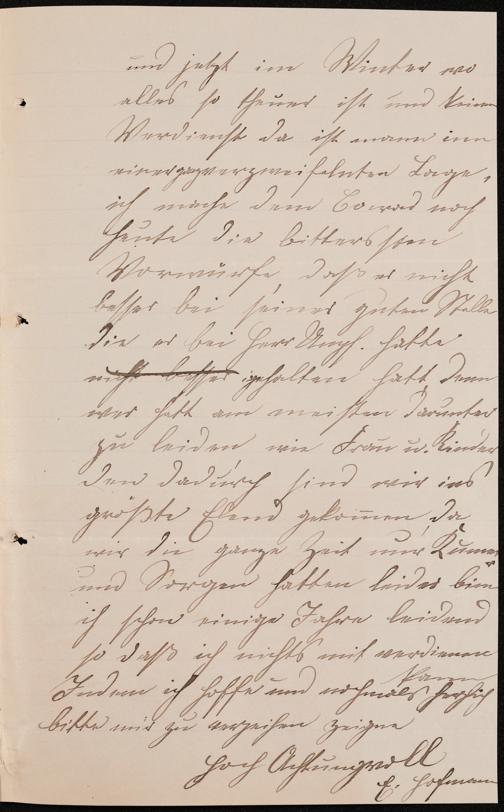 und jetzt im Winter wo
alles so theuer ist und keinen
Verdienst da ist mann inn
einer ganz verzweifelnten Lage,
ich mache dem Conrad noch
heute die bittersten
Vorwürfe, daß er nicht
besser bei seiner guten Stelle
die er bei Herr Umph. hatte
nicht besser gehalten hatt denn
wer hatt am meisten darunter
zu leiden wie Frau u. Kinder
den dadurch sind wir ins
größte Elend gekommen, da
wir die ganze Zeit nur Kummer
und Sorgen hatten leider bin
ich schon einige Jahre leidend
so daß ich nichts mit verdienen
kann
Indem ich hoffe und nochmals herzlich
bitte mir zu verzeihen zeigne
Hoch Achtungvoll
E. Hofmann